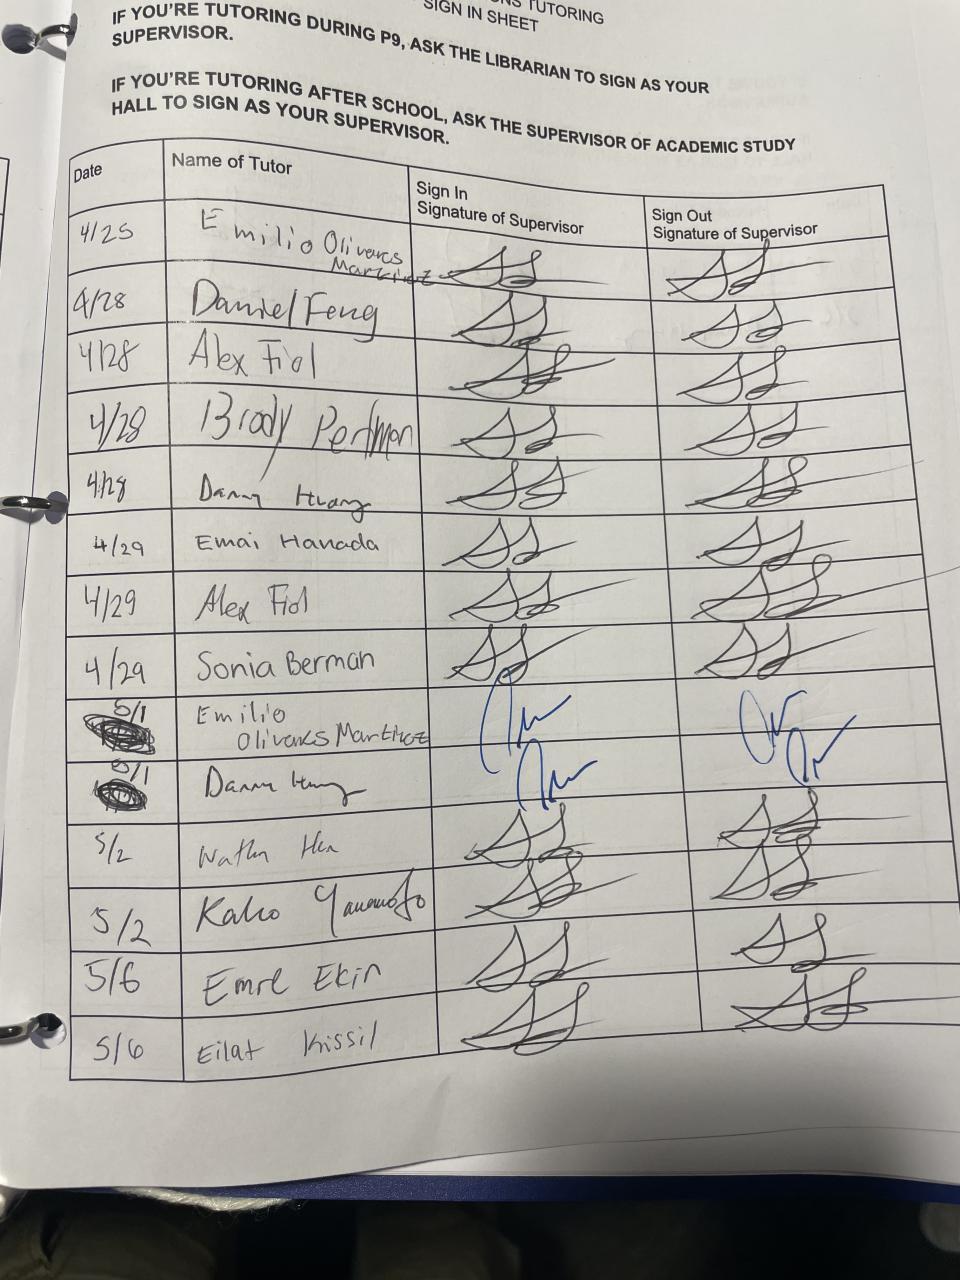 TUTORING
SIGN IN SHEET
IF YOU'RE TUTORING DURING P9, ASK THE LIBRARIAN TO SIGN AS YOUR
SUPERVISOR.
IF YOU'RE TUTORING AFTER SCHOOL, ASK THE SUPERVISOR OF ACADEMIC STUDY
HALL TO SIGN AS YOUR SUPERVISOR.
Date
Name of Tutor
Sign In
Signature of Supervisor
Sign Out
Signature of Supervisor
4/25 Emilio Olivares
Martinez
4/28 Daniel Feng
4/28 Alex Fiol
4/28 Brody Perlman
4/28 Danny Huang
4/29 Emai Hanada
4/29 Alex Fiol
4/29 Sonia Berman
5/1 Emilio
Olivares Martinez
5/1 Danny
5/2
5/2 Kaho
5/6 Emre Ekin
5/6 Eilat Kissil